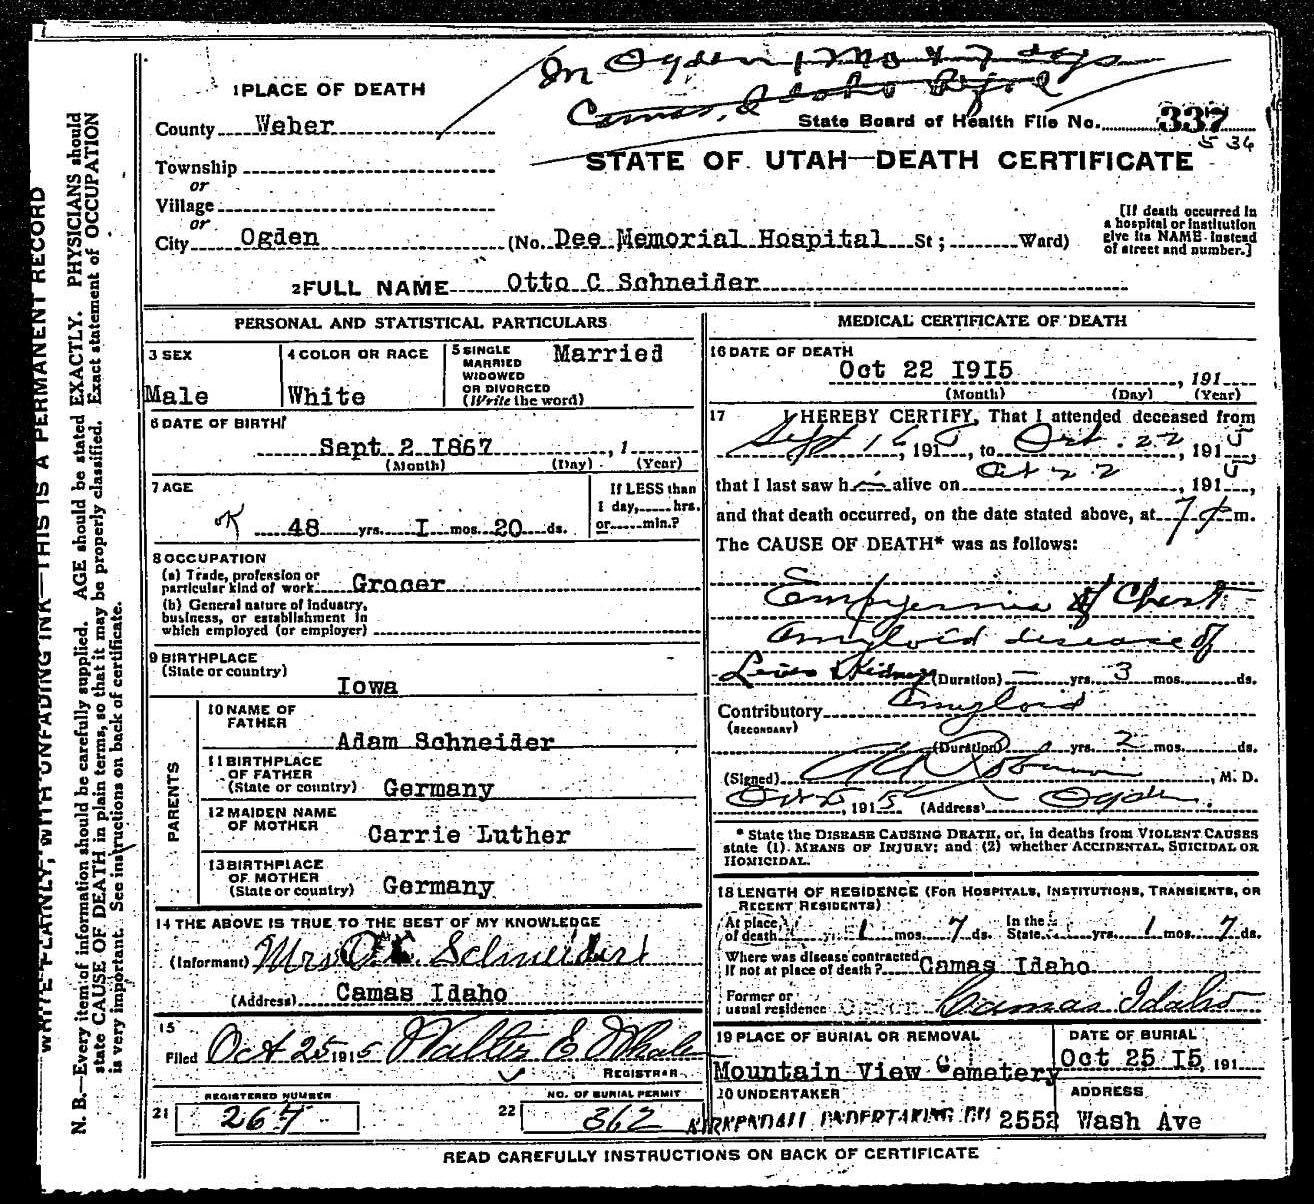 In Ogden 1 Mo & 7 dys
Camas, Idaho
1 PLACE OF DEATH
County Weber
State Board of Health File No. 337
5 34
STATE OF UTAH—DEATH CERTIFICATE
Township
or
Village
or
City Ogden (No. Dee Memorial Hospital St; Ward)
[If death occurred in a hospital or institution give its NAME instead of street and number.]
2 FULL NAME Otto C Schneider
PERSONAL AND STATISTICAL PARTICULARS
3 SEX
Male
4 COLOR OR RACE
White
5 SINGLE
MARRIED
WIDOWED
OR DIVORCED
(Write the word)
Married
6 DATE OF BIRTH
Sept 2 1867, 1
(Month) (Day) (Year)
7 AGE
OK 48 yrs. I mos. 20 ds.
If LESS than
1 day, hrs.
or min.?
8 OCCUPATION
(a) Trade, profession or
particular kind of work Grocer
(b) General nature of industry,
business, or establishment in
which employed (or employer)
9 BIRTHPLACE
(State or country)
Iowa
PARENTS
10 NAME OF
FATHER
Adam Schneider
11 BIRTHPLACE
OF FATHER
(State or country) Germany
12 MAIDEN NAME
OF MOTHER
Carrie Luther
13 BIRTHPLACE
OF MOTHER
(State or country) Germany
14 THE ABOVE IS TRUE TO THE BEST OF MY KNOWLEDGE
(Informant) Mrs O. C. Schneider
(Address) Camas Idaho
15
Filed Oct 25 1915 Walter E Whalen
REGISTRAR
REGISTERED NUMBER
21 267
NO. OF BURIAL PERMIT
22 362
MEDICAL CERTIFICATE OF DEATH
16 DATE OF DEATH
Oct 22 1915, 191
(Month) (Day) (Year)
17 I HEREBY CERTIFY, That I attended deceased from
Sept 15, 1915, to Oct. 22, 1915,
that I last saw h im alive on Oct 22, 1915,
and that death occurred, on the date stated above, at 7 P m.
The CAUSE OF DEATH* was as follows:
Empyemia of Chest
Amyloid disease of
Liver & Kidneys (Duration) — yrs. 3 mos. ds.
Contributory Amyloid
(SECONDARY)
(Duration) yrs. 2 mos. ds.
(Signed) Robinson, M. D.
Oct 25, 1915 (Address) Ogden.
* State the DISEASE CAUSING DEATH, or, in deaths from VIOLENT CAUSES
state (1) MEANS OF INJURY; and (2) whether ACCIDENTAL, SUICIDAL OR
HOMICIDAL.
18 LENGTH OF RESIDENCE (FOR HOSPITALS, INSTITUTIONS, TRANSIENTS, OR
RECENT RESIDENTS)
At place
of death yrs. 1 mos. 7 ds. In the
State yrs. 1 mos. 7 ds.
Where was disease contracted
if not at place of death? Camas Idaho
Former or
usual residence Camas Idaho
19 PLACE OF BURIAL OR REMOVAL
Mountain View Cemetery
DATE OF BURIAL
Oct 25 15, 191
20 UNDERTAKER
KIRKENDALL UNDERTAKING CO
ADDRESS
2552 Wash Ave
READ CAREFULLY INSTRUCTIONS ON BACK OF CERTIFICATE
WRITE PLAINLY, WITH UNFADING INK—THIS IS A PERMANENT RECORD
N. B.—Every item of information should be carefully supplied. AGE should be stated EXACTLY. PHYSICIANS should
state CAUSE OF DEATH in plain terms, so that it may be properly classified. Exact statement of OCCUPATION
is very important. See instructions on back of certificate.